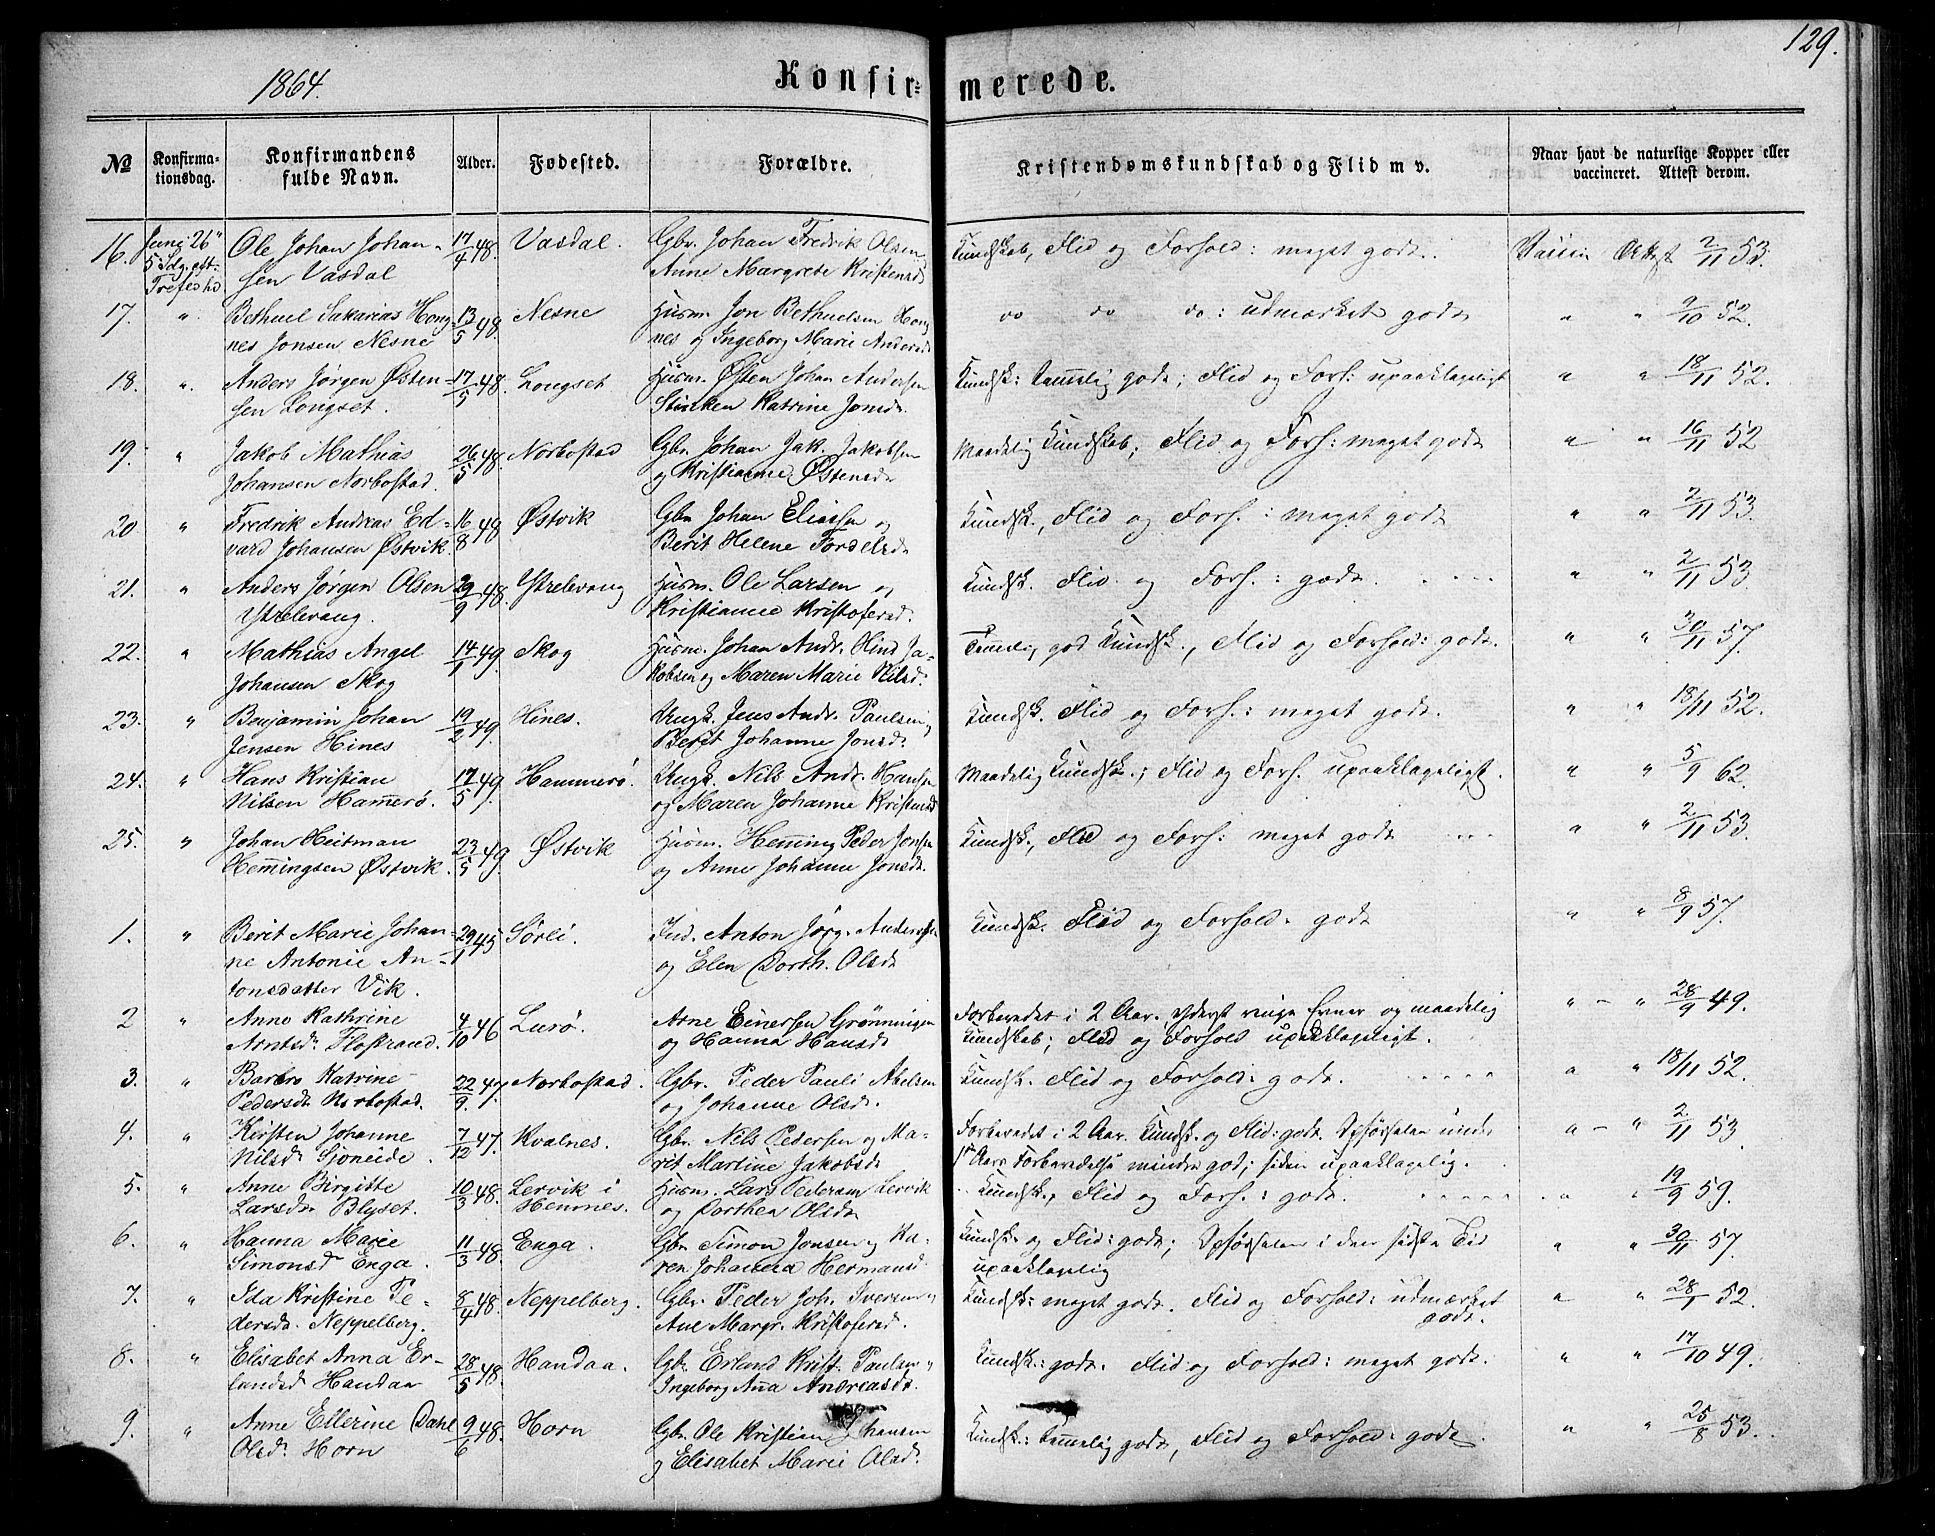 129.
1864.
Konfirmerede.
No Konfirmationsdag. Konfirmandens fulde Navn. Alder. Fødested. Forældre. Kristendomskundskab og Flid m v. Naar havt de naturlige Kopper eller vaccineret. Attest derom.
16. Juni 26" Ole Johan Johan- 17/4 48. Vasdal. Gbr. Johan Fredrik Olsen Kundskab, Flid og Forhold: meget godt. Vaccin Attest 2/11 53.
5 Sdg. eft. sen Vasdal Anne Margrete Kristensd.
Trefoldhd.
17. " Bethuel Sakarias Hong- 13/5 48. Nesne Husm. Jon Bethuelsen Hong- do do do: udmærket godt " " 2/10 52.
nes Jonsen Nesne nes og Ingeborg Marie Andersd.
18. " Anders Jørgen Østen- 17/5 48. Longset Husm. Østen Johan Andersen Kundsk: tammelig godt; Flid og Forh: upaaklageligt " " 18/11 52.
sen Longset. Katrine Jonsd.
19. " Jakob Mathias 26/5 48. Norbostad Gbr. Johan Jak. Jakobsen Maadelig Kundskab; Flid og Forh: meget godt " " 16/11 52
Johansen Norbostad. og Kristianne Østensd.
20 " Fredrik Andreas Ed- 16/8 48 Østvik Gbr. Johan Eliassen og Kundsk., Flid og Forh.: meget godt " " 2/11 53.
vard Johansen Østvik. Berit Helene Fordelsd.
21. " Anders Jørgen Olsen 29/9 48. Ytrelevang Husm. Ole Larsen og Kundsk. Flid og Forh.: godt. " " 2/11 53
Ytrelevang. Kristianne Kristofersd.
22. " Mathias Angel 14/1 49. Skog Husm. Johan Andr. Hind Ja- Tammelig god Kundsk., Flid og Forhold: godt. " " 30/11 57.
Johansen Skog kobsen og Maren Marie Nilsd.
23. " Benjamin Johan 19/2 49. Hines. Ungk. Jens Andr. Paulsen og Kundsk. Flid og Forh.: meget godt. " " 18/11 52.
Jensen Hines Berit Johanne Jonsd.
24. " Hans Kristian 17/5 49. Hammerø. Ungk. Nils Andr. Hansen Maadelig Kundsk.; Flid og Forh. upaaklageligt. " " 5/9 62.
Nilsen Hamerø. og Maren Johanne Kristensd
25. " Johan Heitman 23/5 49. Østvik Husm. Heming Peder Jonsen Kundsk., Flid og Forh: meget godt " " 2/11 53.
Hemingsen Østvik. og Anne Johanne Jonsd.
1. " Berit Marie Johan- 29/1 45 Sørli. Ind. Anton Jørg. Andersen Kundsk. Flid og Forhold: godt " " 8/9 57.
ne Antonie An- og Elen Dorth. Olsd.
tonsdatter Vik.
2 " Anne Kathrine 4/10 46 Lurø. Arne Einersen Grønningen Forberedet i 2 Aar. Yderst ringe Evner og maadelig " - " 28/9 49.
Arntsd. Flostrand. og Hanna Hansd. Kundskab; Flid og Forhold upaaklageligt.
3. " Barbro Katrine 22/9 47. Norbostad. Gbr. Peder Pauli Abelsen Kundsk. Flid og Forhold: godt. " " 18/11 52.
Pedersd. Norbostad. og Johanne Olsd.
4. " Kirsten Johanne 7/12 47. Kvalnes. Gbr. Nils Pedersen og Ma- Forberedet i 2 Aar. Kundsk. og Flid: godt. Opførselen under " - " 2/11 53
Nilsd. Sjoneide. rit Martine Jakobsd. 1st Aars Forberedelse mindre god; siden upaaklagelig.
5. " Anne Birgitte 10/3 48. Lervik i Husm. Lars Pedersen Lervik Kundsk., Flid og Forh.: godt. " " 19/9 59.
Larsd. Blyset. Hemnes. og Dorthea Olsd.
6. " Hanna Marie 11/3 48. Enga. Gbr. Simon Jonsen og Ka- Kundsk. og Flid: godt; Opførselen i den sidste Tid " " 30/11 57.
Simonsd Enga. ren Johanna Hermansd. upaaklagelig
7. " Ida Kristine Pe- 8/4 48. Neppelberg. Gbr. Peder Joh. Iversen og Kundsk: meget godt. Flid og Forhold: udmærket " " 28/1 52.
dersd. Neppelberg. Ane Margr. Kristofersd. godt.
8. " Elisabet Anna Er- 28/5 48. Handaa. Gbr. Erland Krist. Paulsen og Kundsk.: godt. Flid og Forhold: meget godt. " " 17/10 49.
landsd Handaa Ingeborg Ana Andreasd.
9. " Anne Ellerine Dahl 9/6 48. Horn Gbr. Ole Kristian Johansen Kundsk.: tammelig godt, Flid og Forhold: godt. " " 25/8 53.
Olsd. Horn og Elisabet Marie Olsd.